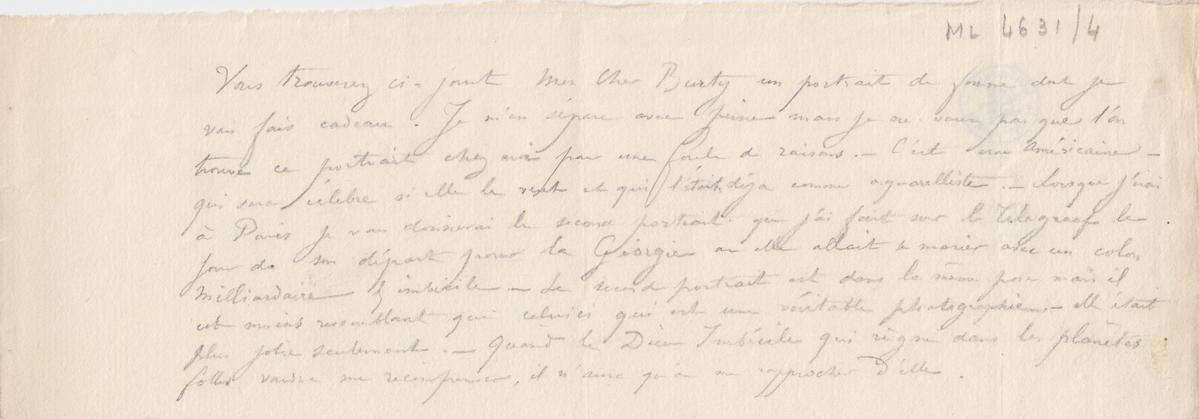 ML 4631/4
Vous trouverez ci-joint Mon Cher Burty un portrait de femme dont je
vous fais cadeau. Je m'en sépare avec peine mais je ne veux pas que l'on
trouve ce portrait chez moi par une foule de raisons. — C'est une américaine —
qui sera célèbre si elle le veut et qui l'était déja comme aquarelliste. — Lorsque j'irai
à Paris je vous donnerai le second portrait que j'ai fait sur le le
jour de son départ pour la Géorgie où elle allait se marier avec un colon
milliardaire & imbécile — Le second portrait est dans la même pose mais il
est moins ressemblant que celui ci qui est une véritable photographie — elle était
plus jolie seulement. — Quand le Dieu Imbécile qui règne dans les planètes
folles voudra me recompenser, il n'aura qu'à me rapprocher d'elle.